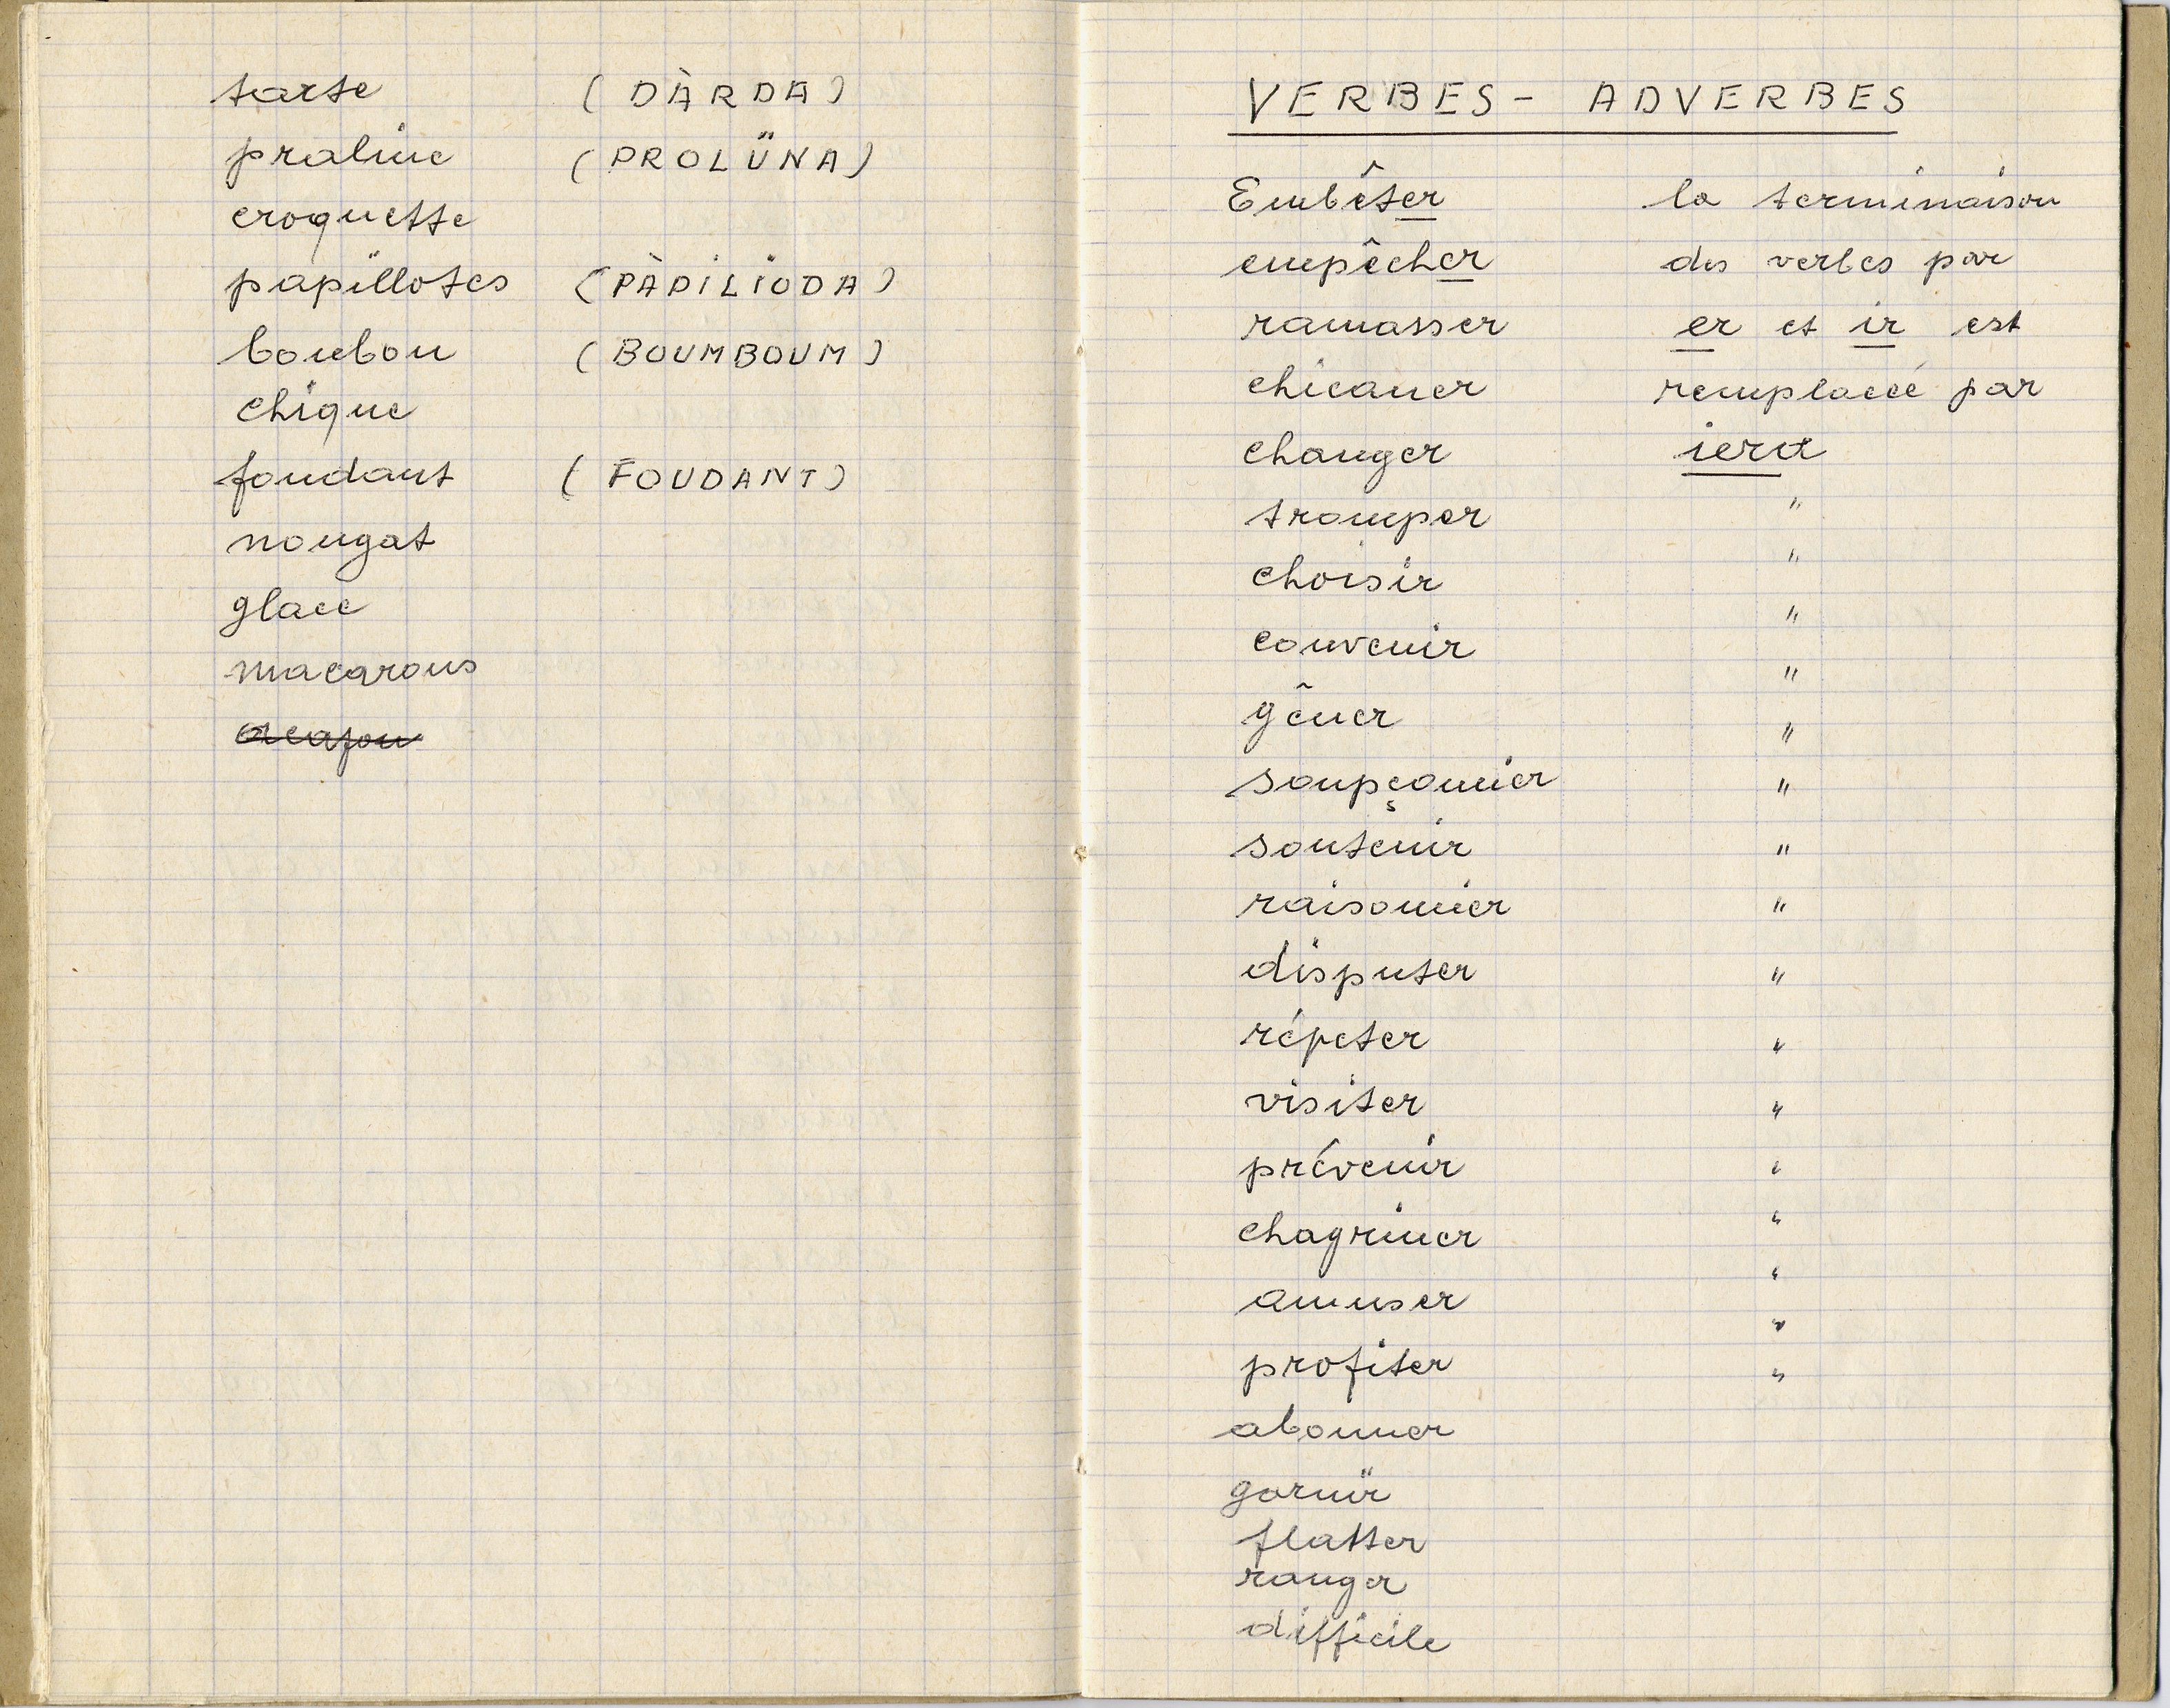 tarte (DÀRDA)
praline (PROLÜNA)
croquette
papillotes (PÀDILIODA)
bonbon (BOUMBOUM)
chique
fondant (FOUDANT)
nougat
glace
macarons
acajou
VERBES - ADVERBES
Embêter la terminaison
empêcher des verbes par
ramasser er et ir est
chicaner remplacée par
changer iera
tromper "
choisir "
convenir "
gêner "
soupçonnier "
soutenir "
raisonnier "
disputer "
répeter "
visiter "
prévenir "
chagriner "
amuser "
profiter "
abonner
garnir
flatter
ranger
difficile